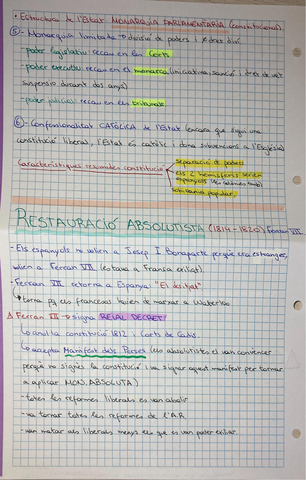 • Estructura de l'Estat MONARQUIA PARLAMENTÀRIA (constitucional)
⑤ - Monarquia limitada → divisió de poders i dret diví
- poder legislatiu recau en les Corts
- poder executiu recau en el monarca (iniciativa, sanció i dret de vet
suspensiu durant dos anys)
- poder judicial recau en els tribunals
⑥ - Confessionalitat CATÒLICA de l'Estat (encara que sigui una
constitució liberal, l'Estat és catòlic i dona subvencions a l'Església)
Característiques resumides constitució
separació de poders
els 2 hemisferis seran
espanyols
sobirania popular
RESTAURACIÓ ABSOLUTISTA (1814-1820) Ferran VII
- Els espanyols no volien a Josep I Bonaparte perquè era estranger,
volien a Ferran VII (estava a França exiliat)
- Ferran VII retorna a Espanya "El desitjat"
↳ torna pq els francesos havien de marxar a Waterloo
Ferran VII → signa REIAL DECRET
↳ anul·la constitució 1812 i Corts de Cadis
↳ accepta Manifest dels Perses (els absolutistes el van convèncer
perquè no signés la constitució i va signar aquest manifest per tornar
a aplicar MON. ABSOLUTA)
- totes les reformes liberals es van abolir
- va tornar totes les reformes de l'A.R
- van matar als liberals menys els que es van poder exiliar